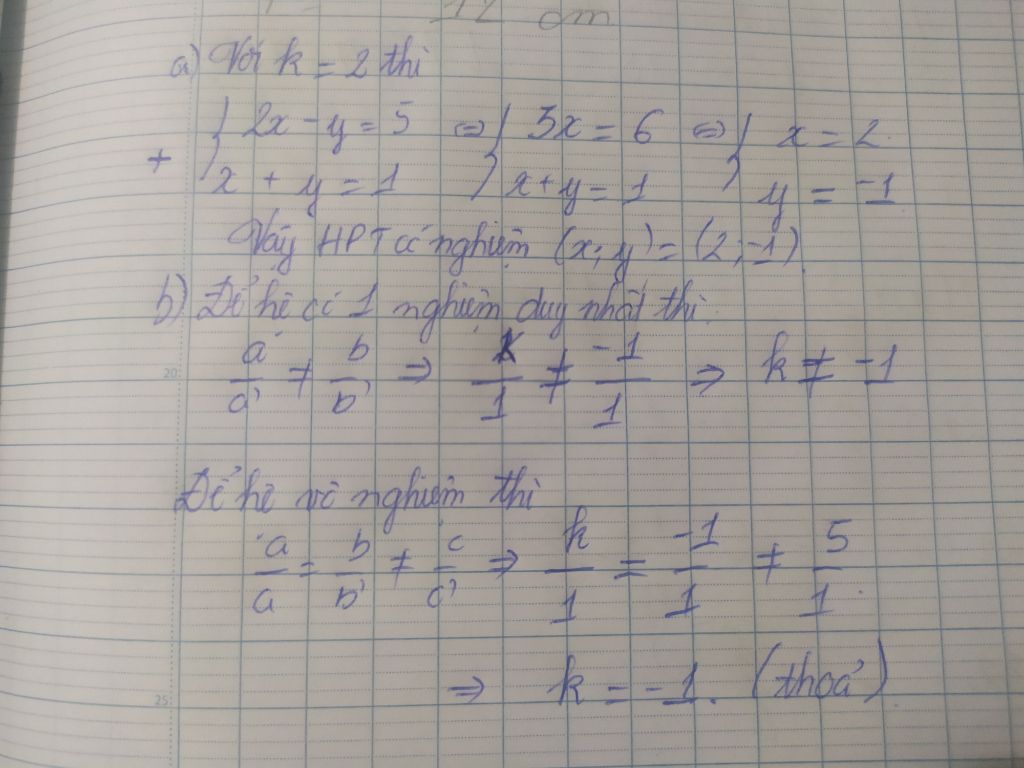 12 cm
a) Với k = 2 thì
{ 2x - y = 5 ⇔ { 3x = 6 ⇔ { x = 2
+ x + y = 1 x + y = 1 y = -1
Vậy HPT có nghiệm (x; y) = (2; -1)
b) Để hệ có 1 nghiệm duy nhất thì:
a/a' ≠ b/b' ⇒ k/1 ≠ -1/1 ⇒ k ≠ -1
20
Để hệ vô nghiệm thì
a/a = b/b' ≠ c/c' ⇒ k/1 = -1/1 ≠ 5/1
⇒ k = -1. (thoả)
25